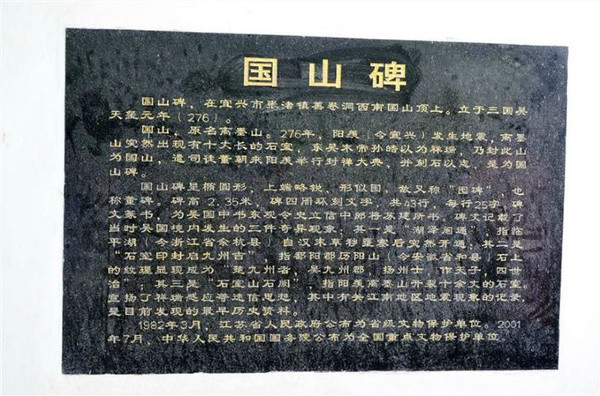 国山碑
国山碑，在宜兴市张渚镇善卷洞西南国山顶上。立于三国吴
天玺元年（276）。
国山，原名离墨山。276年，阳羡（今宜兴）发生地震，离墨
山突然出现有十大长的石室，东吴末帝孙皓以为祥瑞，乃封此山
为国山，遣司徒董朝来阳羡举行封禅大典，并刻石以志，是为国
山碑。
国山碑呈椭圆形，上端略锐，形似囤，故又称“囤碑”，也
称董碑，碑高2.35米，碑四周环刻文字，共43行，每行25字，碑
文篆书，为吴国中书东观令史立信中郎将苏建所书，碑文记载了
当时吴国境内发生的三件奇异现象：其一是“湖泽闿通”，指临
平湖（今浙江省余杭县）自汉末草秽壅塞后突然开通，其二是
“石室印封启九州吉”，指鄱阳郡历阳山（今安徽省和县）石上
的纹理显现成为“楚九州渚，吴九州都，扬州士，作天子，四世
治”；其三是“石室山石闿”，指阳羡离墨山开裂十余丈的石室。
宣扬了祥瑞感应等迷信思想，其中有关江南地区地震现象的记录，
是目前发现的最早历史资料。
1982年3月，江苏省人民政府公布为省级文物保护单位。2001
年7月，中华人民共和国国务院公布为全国重点文物保护单位